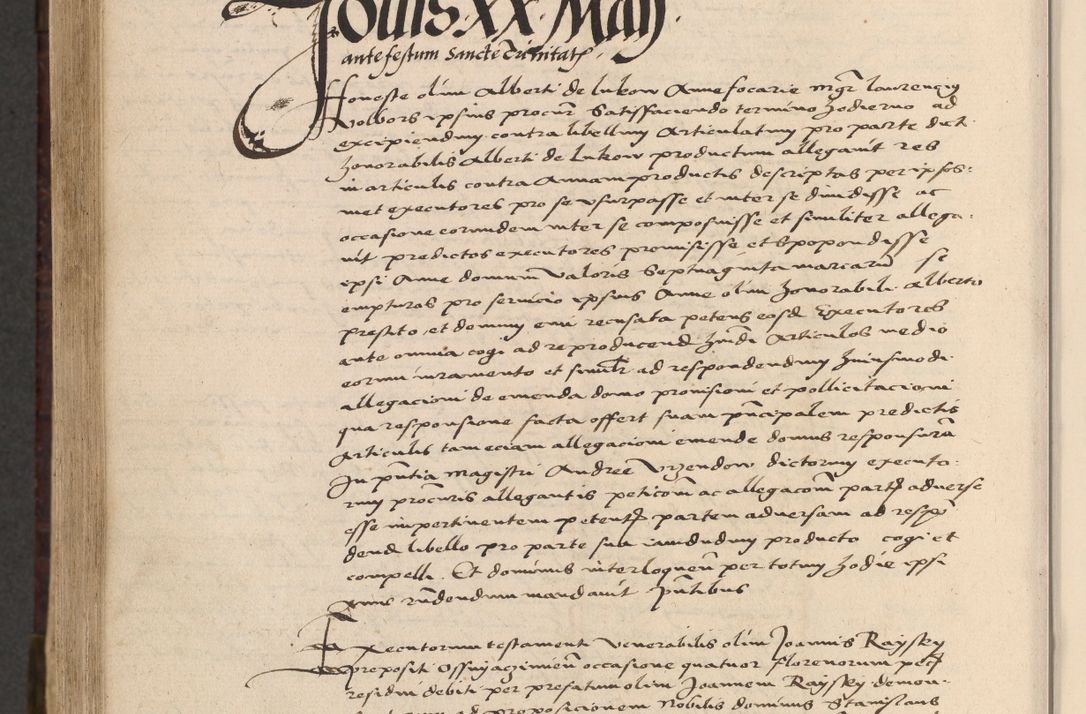 Jouis · XX · Maij ·
ante festum Sancte Trinitatis
Honeste olim Alberti de Lukow Anne focarie mgr Laurencij
Wolbors ipsius procur satisfaciendo termino hodierno ad
excipiendum contra libellum articulatum pro parte dict
honorabilis Alberti de Lukow productum allegauit res
in articulis contra Annam productis descriptas per ipsos
met executores pro se vsurpasse et inter se diuidisse ac
occasione eorundem inter se composuisse et similiter allega
uit predictos executores promisisse et spopondisse
ipsi Anne domum valoris septuaginta marcarum se
empturos pro seruicio ipsius Anne olim honorabili Alberto
prestito et demum emi recusata petens eosd executores
ante omnia cogi ad reproducend hmdi articulos medio
eorum iuramento et simlr ad respondendum huiusmodi
allegacioni de emenda domo promisioni et pollicitacioni
qua responsione facta offert suam principalem predictis
articulis tam eciam allegacioni emende domus responsuram
In pntia magistri Andree Vrzendow dictorum executo
rum procuris allegantis peticom ac allegacom partis aduerse
esse impertinentem petentis partem aduersam ad respo
dend libello pro parte sua iamdudum producto cogi et
compelli. Et dominus interloquen per totum hodie ipsi
Anne rndendum mandauit pntibus
Executorum testamenti venerabilis olim Joannis Raysky
prepositi Ossuyaczimien occasione quatuor florenorum pecf
residui debiti per prefatum olim Joannem Raysky demon
ad proposicionem nobilis dominus Stanislaus